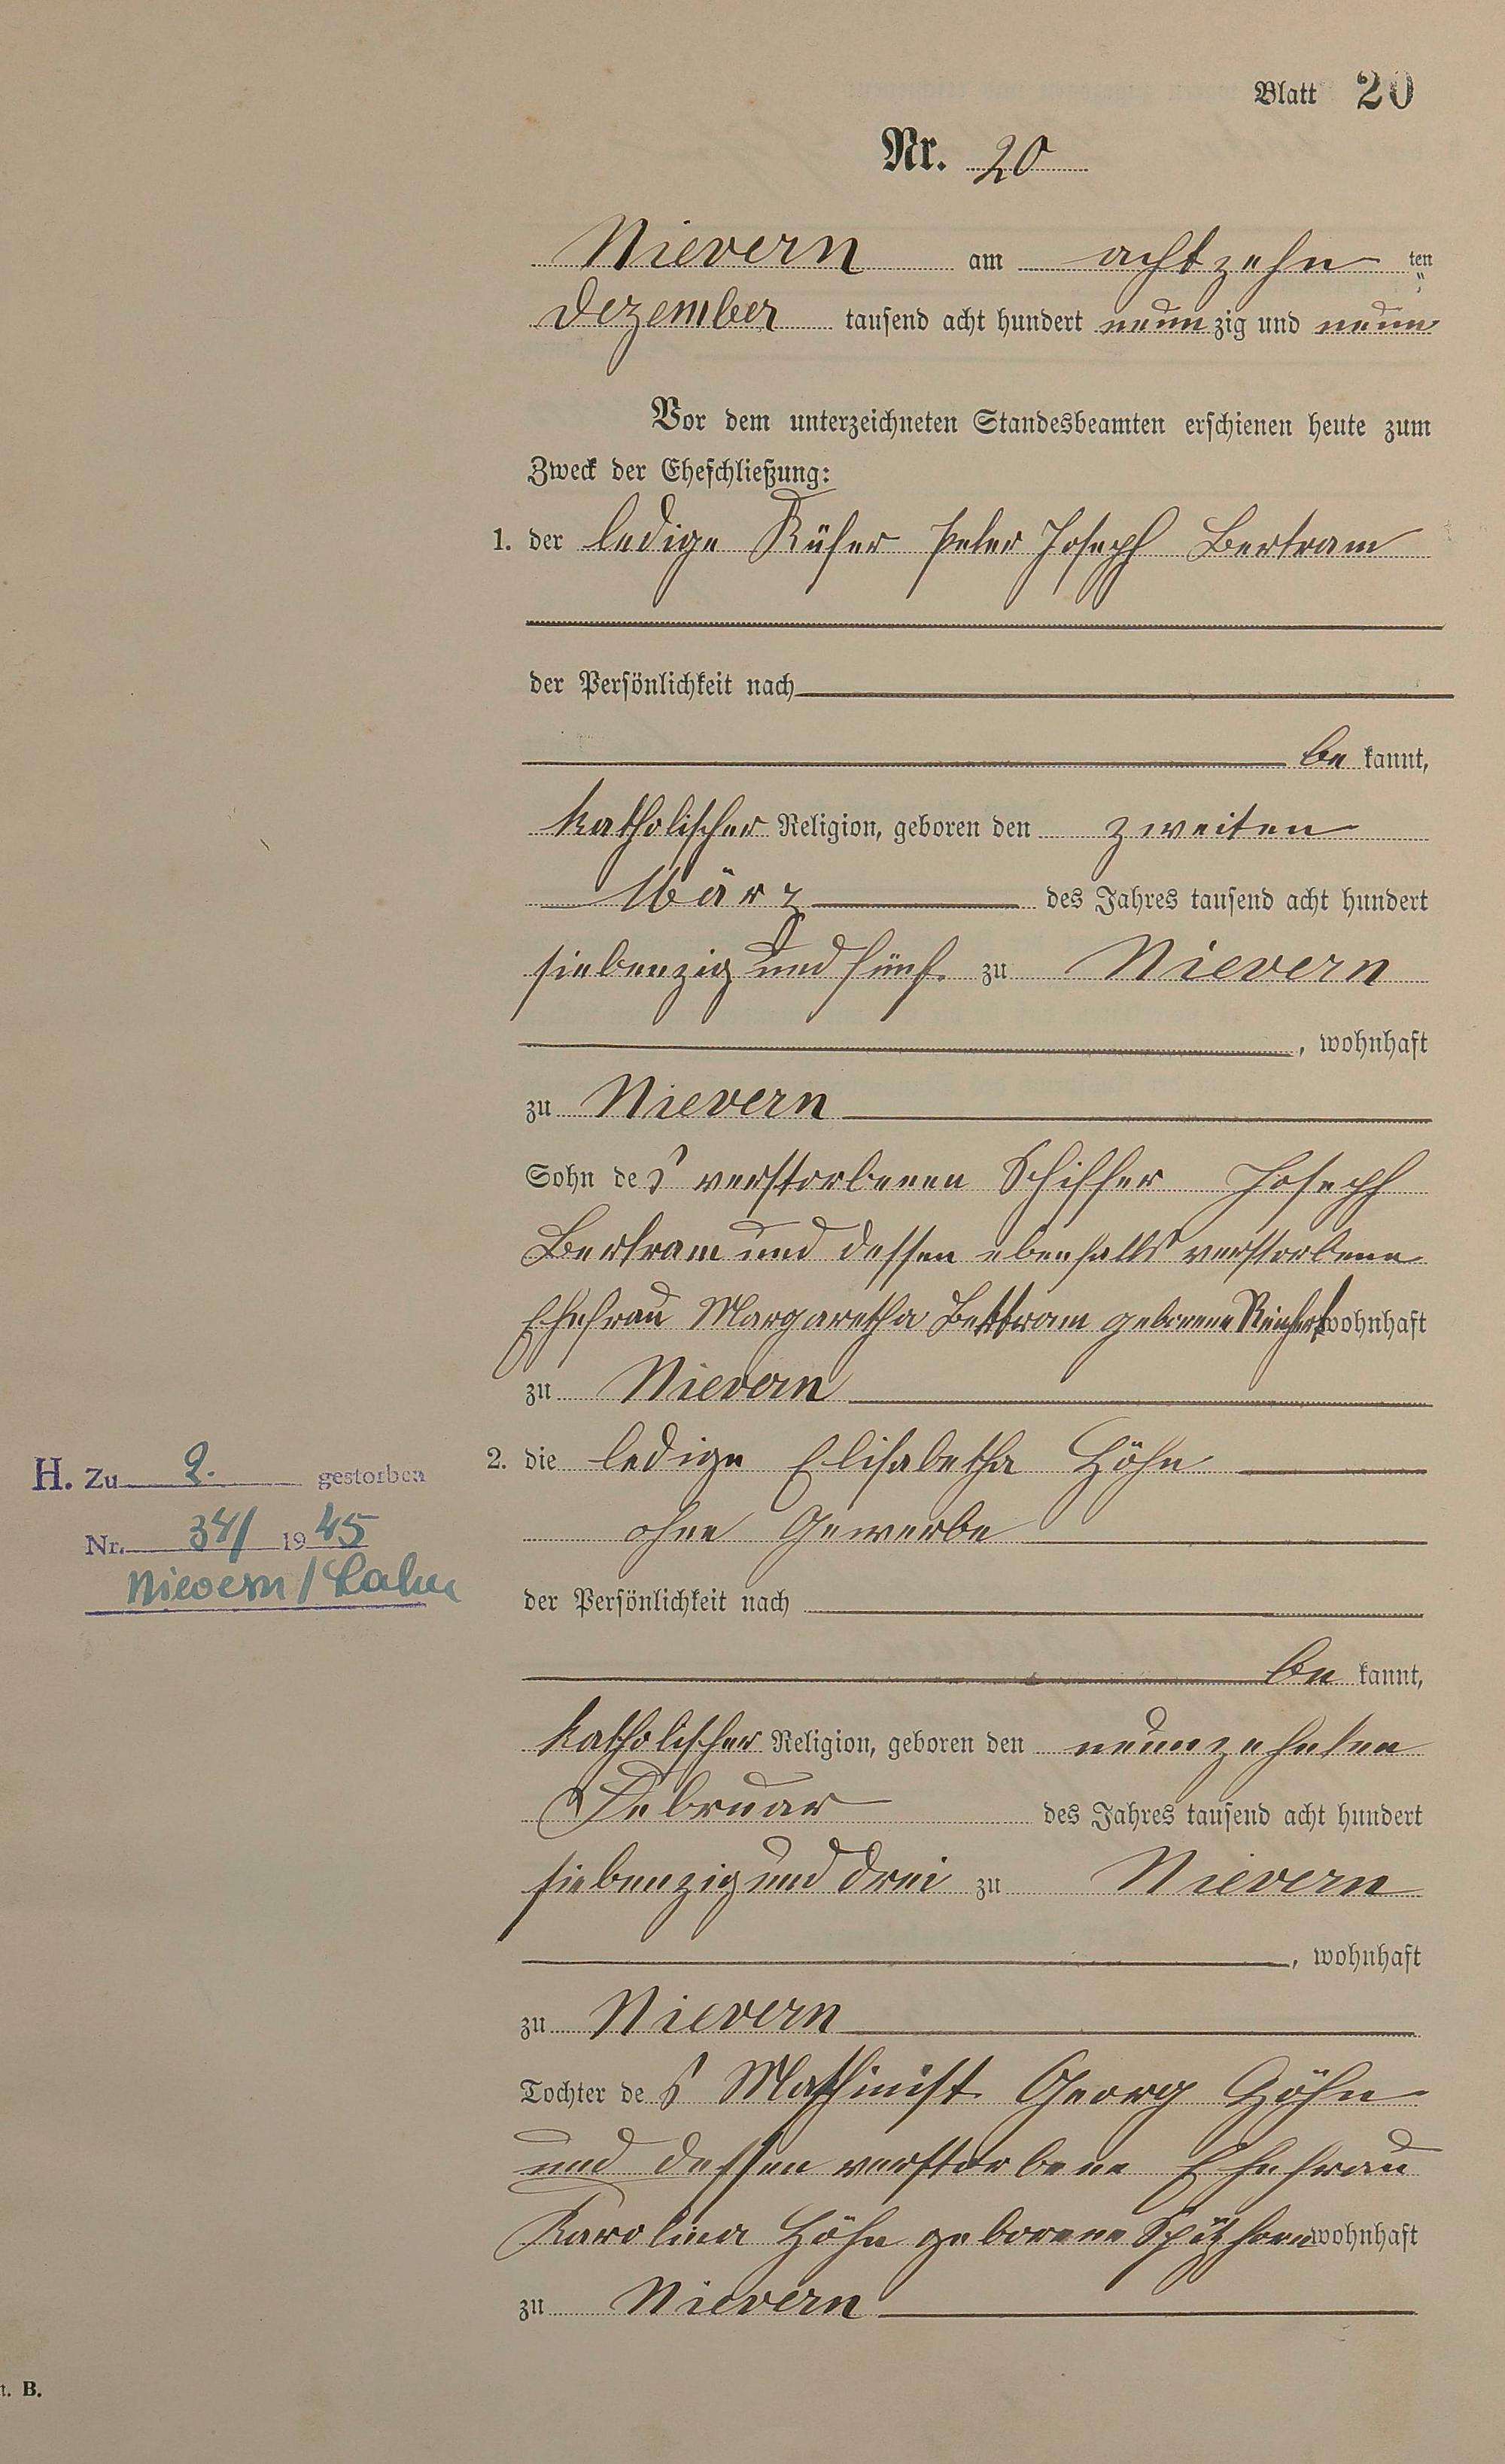 Blatt 20
Nr. 20
Nievern am achtzehn ten
Dezember tausend acht hundert neunzig und neun
Vor dem unterzeichneten Standesbeamten erschienen heute zum
Zweck der Eheschließung:
1. der ledige Küfer Peter Joseph Bertram
der Persönlichkeit nach
be kannt,
katholischer Religion, geboren den zweiten
März des Jahres tausend acht hundert
siebenzig und fünf zu Nievern
, wohnhaft
zu Nievern
Sohn des verstorbenen Schiffer Joseph
Bertram und dessen ebenfalls verstorbene
Ehefrau Margaretha Bertram geborene Reichert wohnhaft
zu Nievern
2. die ledige Elisabetha Höhn
H. Zu 2. gestorben
ohne Gewerbe
Nr. 34/ 1945
Nievern/Lahn
der Persönlichkeit nach
be kannt,
katholischer Religion, geboren den neunzehnten
Februar des Jahres tausend acht hundert
siebenzig und drei zu Nievern
, wohnhaft
zu Nievern
Tochter des Maschinist Georg Höhn
und dessen verstorbene Ehefrau
Karolina Höhn geborene Spitzhorn wohnhaft
zu Nievern
B.